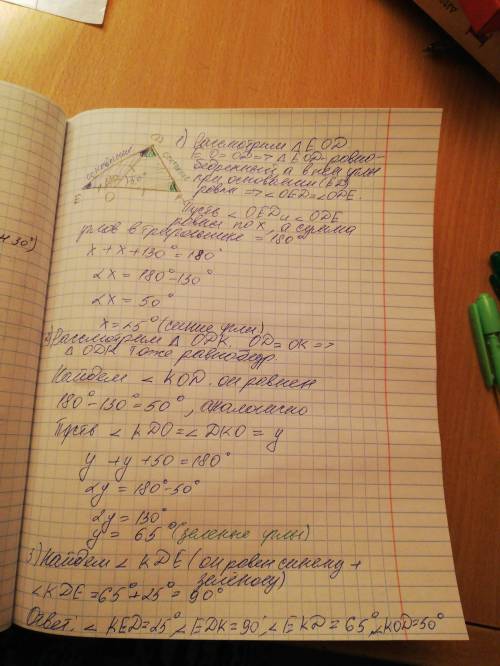 н 30°)
D
основание
основание
130°
50°
E
O
K
1) Рассмотрим △ EOD
EO = OD => △ EOD равно-
бедренный, а в нем углы
при основании (ED)
равны => ∠OED=∠ODE.
Пусть ∠ OED и ∠ ODE
равны по x, а сумма
углов в треугольнике = 180°
x + x + 130° = 180°
2x = 180° - 130°
2x = 50°
x = 25° (синие углы)
2) Рассмотрим △ ODK. OD = OK =>
△ ODK тоже равнобедр.
Найдем ∠ KOD. он равен
180° - 130° = 50°, аналогично
Пусть ∠ KDO = ∠ DKO = y
y + y + 50 = 180°
2y = 180° - 50°
2y = 130°
y = 65° (зеленые углы)
3) Найдем ∠ KDE (он равен синему +
зеленому)
∠KDE = 65° + 25° = 90°
Ответ: ∠ KED = 25°, ∠ EDK = 90°, ∠ EKD = 65°, ∠KOD = 50°